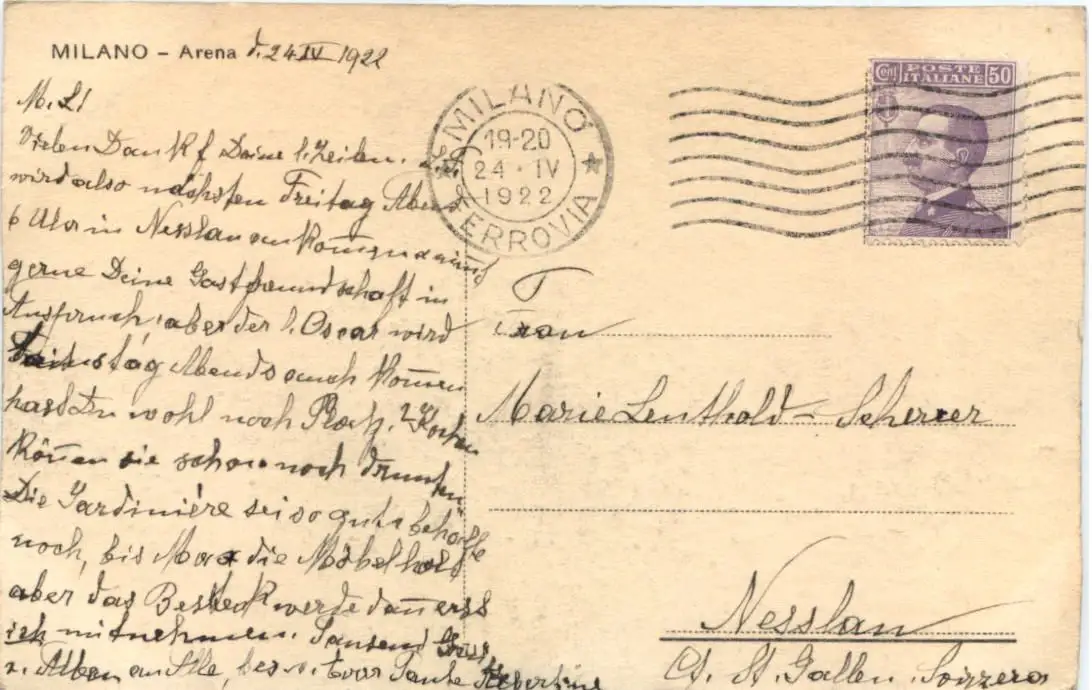 MILANO - Arena d. 24 IV 1922
M. L!
Vielen Dank f. Deine l. Zeilen.
wird also nächsten Freitag Abend
6 Uhr in Nesslau ankommen und
gerne Deine Gastfreundschaft in
Anspruch, aber der l. Oscar wird
Abends auch kommen
hast Du wohl noch Platz. ? Kochen
können sie schon noch drunten
Die Jardinière sei so gut & behalte
noch, bis Max die Möbel holt
aber das Besteck werde dann erst
ich mitnehmen. Tausend Grüsse
v. Alben an Alle, bes. v. Eurer Tante
MILANO
19-20
24·IV
1922
FERROVIA
Cent POSTE ITALIANE 50
Frau
Marie Leuthold-Scherrer
Nesslau
Ct. St. Gallen. Svizzera